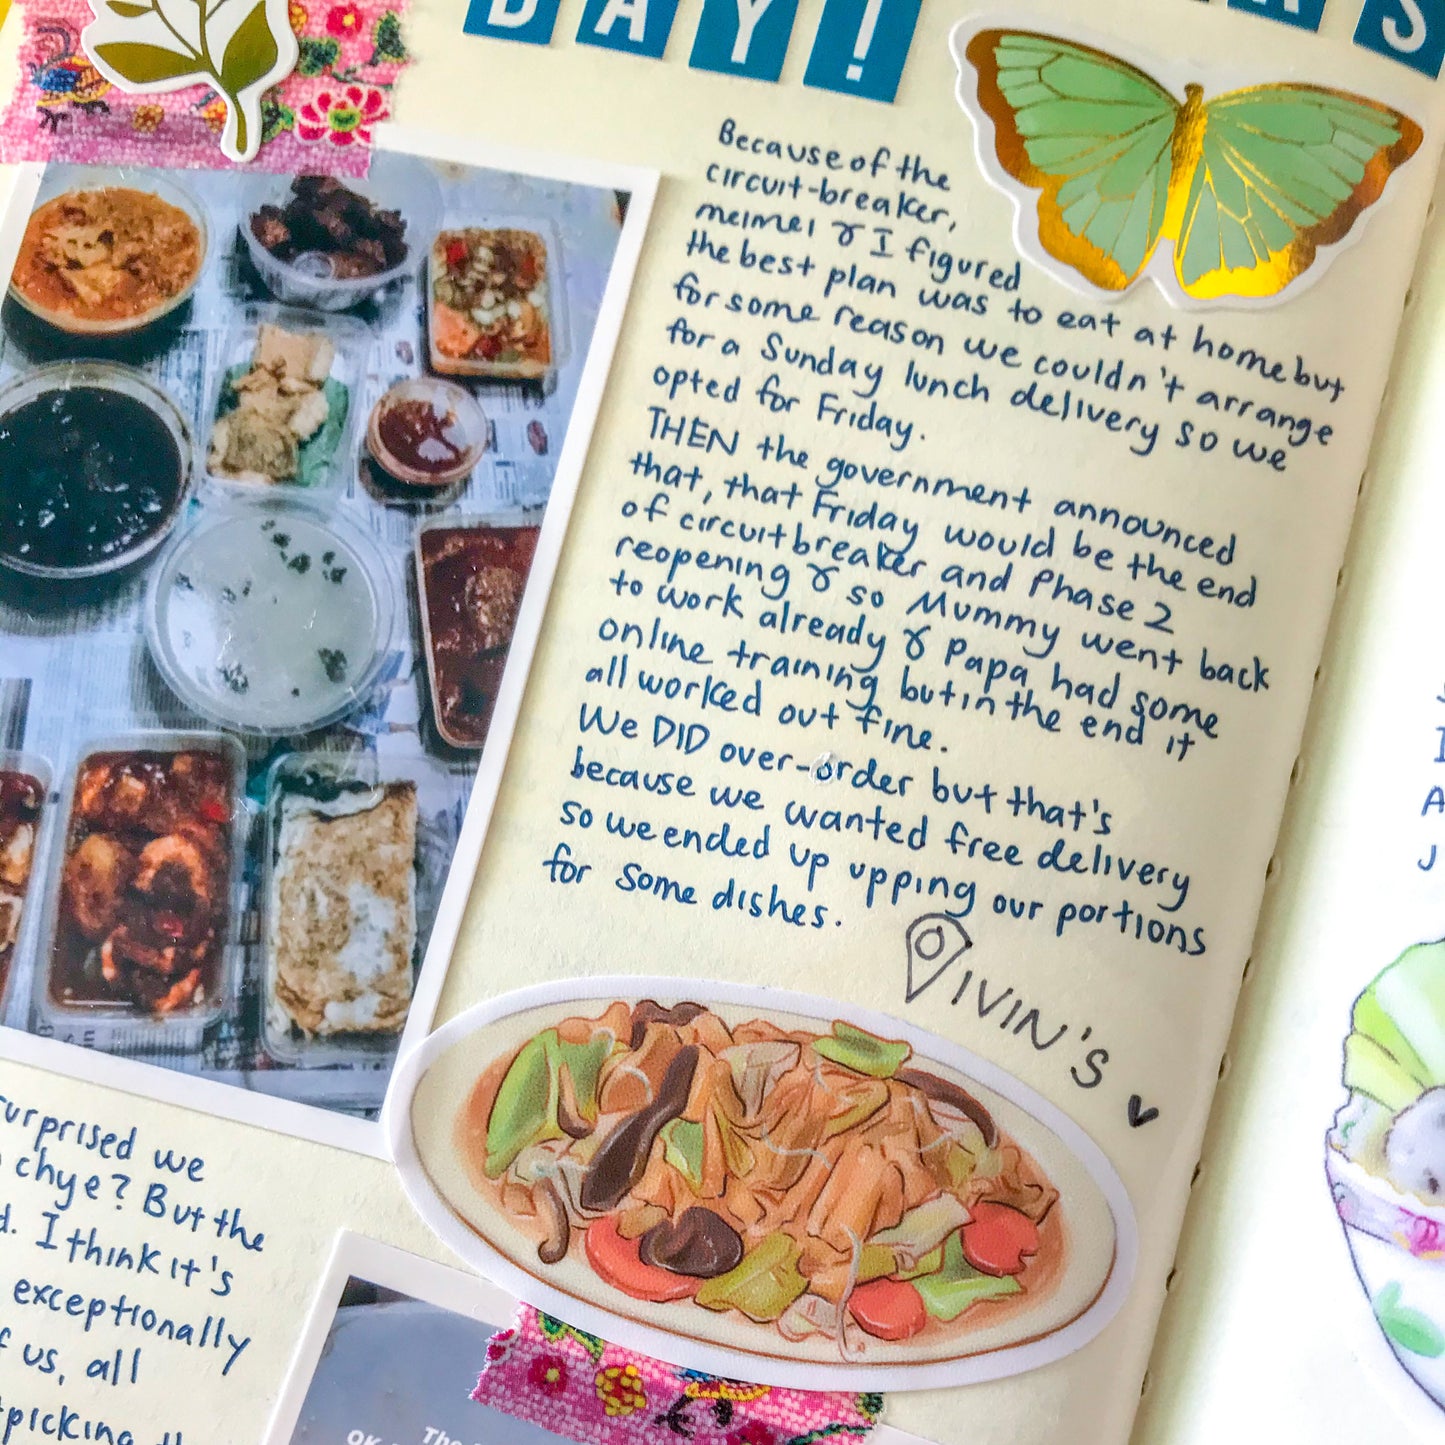 DAY!
Because of the
circuit-breaker,
meimei & I figured
the best plan was to eat at home but
for some reason we couldn't arrange
for a Sunday lunch delivery so we
opted for Friday.
THEN the government announced
that, that Friday would be the end
of circuitbreaker and Phase 2
reopening & so Mummy went back
to work already & Papa had some
online training but in the end it
all worked out fine.
We DID over-order but that's
because we wanted free delivery
so we ended up upping our portions
for some dishes.
IVIN'S
surprised we
chye? But the
I think it's
exceptionally
us, all
picking
OK